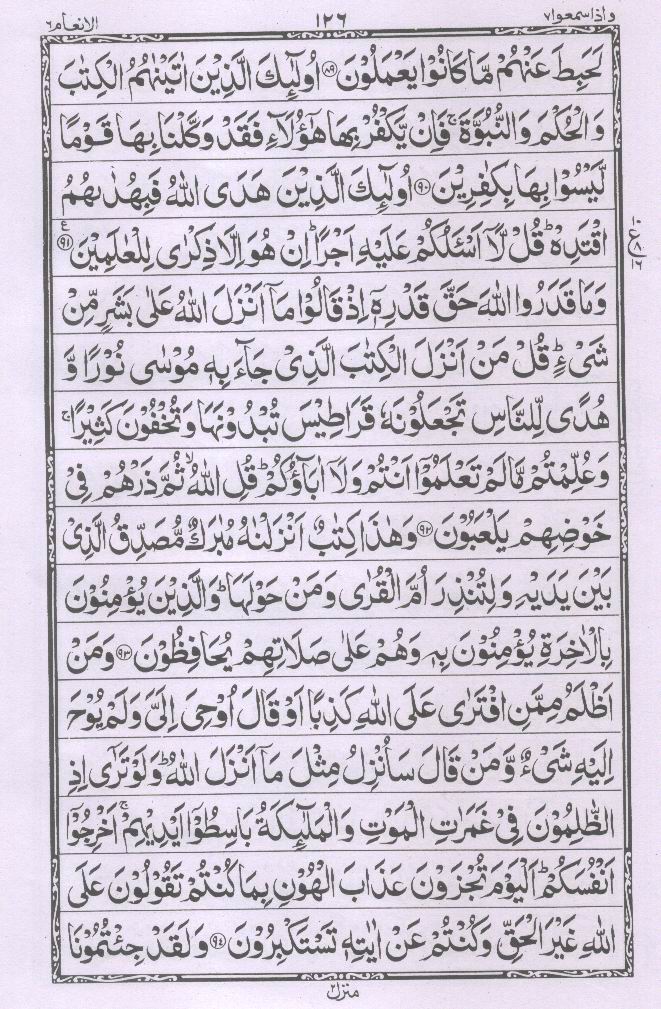 واذا سمعوا ٧ ١٢٦ الانعام ٦
لَحَبِطَ عَنْهُمْ مَّا كَانُوْا يَعْمَلُوْنَ ﴿٨٩﴾ اُولٰٓئِكَ الَّذِيْنَ اٰتَيْنٰهُمُ الْكِتٰبَ
وَالْحُكْمَ وَالنُّبُوَّةَ ۚ فَاِنْ يَّكْفُرْ بِهَا هٰٓؤُلَآءِ فَقَدْ وَكَّلْنَا بِهَا قَوْمًا
لَّيْسُوْا بِهَا بِكٰفِرِيْنَ ﴿٩٠﴾ اُولٰٓئِكَ الَّذِيْنَ هَدَى اللّٰهُ فَبِهُدٰىهُمُ
اقْتَدِهْ ؕ قُلْ لَّاۤ اَسْـَٔلُكُمْ عَلَيْهِ اَجْرًا ؕ اِنْ هُوَ اِلَّا ذِكْرٰى لِلْعٰلَمِيْنَ ﴿٩١﴾ ع
وَمَا قَدَرُوا اللّٰهَ حَقَّ قَدْرِهٖۤ اِذْ قَالُوْا مَاۤ اَنْزَلَ اللّٰهُ عَلٰى بَشَرٍ مِّنْ
شَىْءٍ ؕ قُلْ مَنْ اَنْزَلَ الْكِتٰبَ الَّذِىْ جَآءَ بِهٖ مُوْسٰى نُوْرًا وَّ
هُدًى لِّلنَّاسِ تَجْعَلُوْنَهٗ قَرَاطِيْسَ تُبْدُوْنَهَا وَتُخْفُوْنَ كَثِيْرًا ۚ
وَعُلِّمْتُمْ مَّا لَمْ تَعْلَمُوْۤا اَنْتُمْ وَلَاۤ اٰبَآؤُكُمْ ؕ قُلِ اللّٰهُ ۙ ثُمَّ ذَرْهُمْ فِىْ
خَوْضِهِمْ يَلْعَبُوْنَ ﴿٩٢﴾ وَهٰذَا كِتٰبٌ اَنْزَلْنٰهُ مُبٰرَكٌ مُّصَدِّقُ الَّذِىْ
بَيْنَ يَدَيْهِ وَلِتُنْذِرَ اُمَّ الْقُرٰى وَمَنْ حَوْلَهَا ؕ وَالَّذِيْنَ يُؤْمِنُوْنَ
بِالْاٰخِرَةِ يُؤْمِنُوْنَ بِهٖ وَهُمْ عَلٰى صَلَاتِهِمْ يُحَافِظُوْنَ ﴿٩٣﴾ وَمَنْ
اَظْلَمُ مِمَّنِ افْتَرٰى عَلَى اللّٰهِ كَذِبًا اَوْ قَالَ اُوْحِىَ اِلَىَّ وَلَمْ يُوْحَ
اِلَيْهِ شَىْءٌ وَّمَنْ قَالَ سَاُنْزِلُ مِثْلَ مَاۤ اَنْزَلَ اللّٰهُ ؕ وَلَوْ تَرٰٓى اِذِ
الظّٰلِمُوْنَ فِىْ غَمَرٰتِ الْمَوْتِ وَالْمَلٰٓئِكَةُ بَاسِطُوْۤا اَيْدِيْهِمْ ۚ اَخْرِجُوْۤا
اَنْفُسَكُمْ ؕ اَلْيَوْمَ تُجْزَوْنَ عَذَابَ الْهُوْنِ بِمَا كُنْتُمْ تَقُوْلُوْنَ عَلَى
اللّٰهِ غَيْرَ الْحَقِّ وَكُنْتُمْ عَنْ اٰيٰتِهٖ تَسْتَكْبِرُوْنَ ﴿٩٤﴾ وَلَقَدْ جِئْتُمُوْنَا
منزل ٢